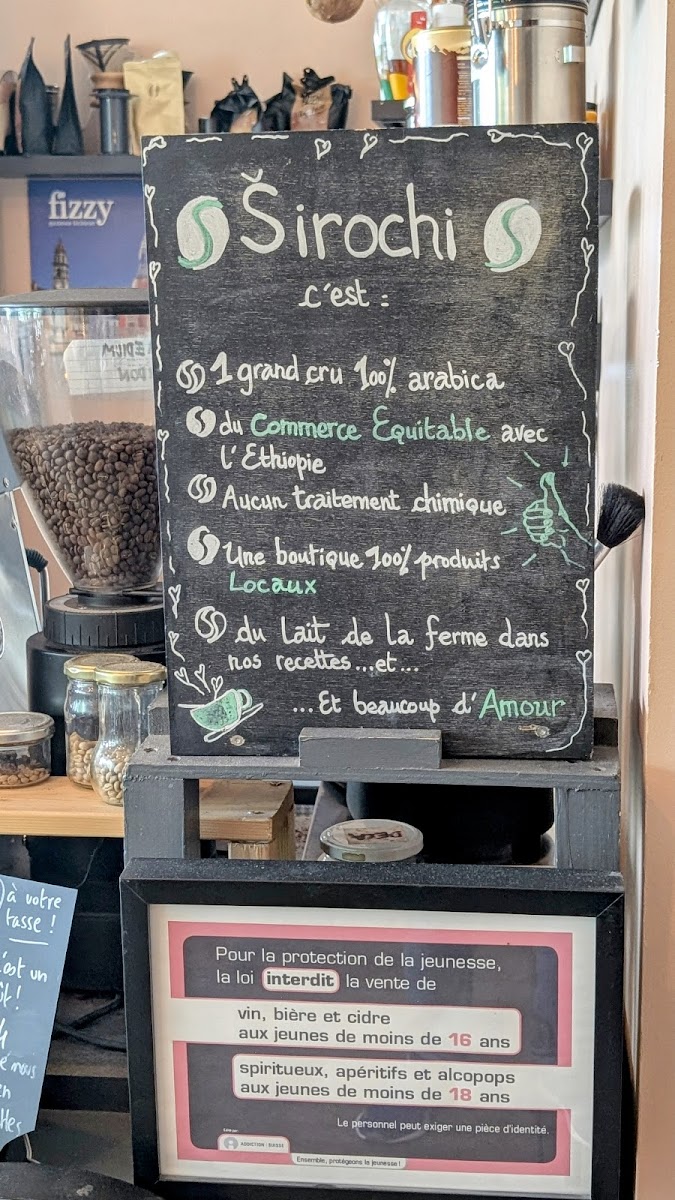 fizzy
Širochi
c'est :
1 grand cru 100% arabica
du Commerce Equitable avec
l'Ethiopie
Aucun traitement chimique
Une boutique 100% produits
Locaux
du Lait de La ferme dans
nos recettes...et...
...Et beaucoup d'Amour
DECA
à votre
tasse !
Pour la protection de la jeunesse,
la loi interdit la vente de
vin, bière et cidre
aux jeunes de moins de 16 ans
spiritueux, apéritifs et alcopops
aux jeunes de moins de 18 ans
Le personnel peut exiger une pièce d'identité.
ADDICTION | SUISSE
Ensemble, protégeons la jeunesse !